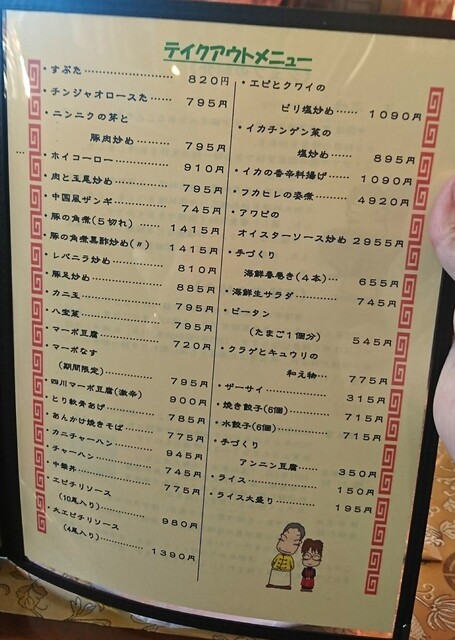 テイクアウトメニュー
・すぶた……………………820円
・チンジャオロースた……795円
・ニンニクの芽と
豚肉炒め………795円
・ホイコーロー……………910円
・肉と玉尾炒め……………795円
・中国風ザンギ……………745円
・豚の角煮(5切れ)……1415円
・豚の角煮黒酢炒め(〃)1415円
・レバニラ炒め……………810円
・豚足炒め…………………885円
・カニ玉……………………795円
・八宝菜……………………795円
・マーボ豆腐………………720円
・マーボなす
(期間限定)……………795円
・四川マーボ豆腐(激辛)900円
・とり軟骨あげ……………785円
・あんかけ焼きそば………775円
・カニチャーハン…………945円
・チャーハン………………745円
・中華丼……………………775円
・エビチリソース
(10尾入り)……………980円
・大エビチリソース
(4尾入り)……………1390円
・エビとクワイの
ピリ塩炒め……1090円
・イカチンゲン菜の
塩炒め……895円
・イカの香辛料揚げ……1090円
・フカヒレの姿煮………4920円
・アワビの
オイスターソース炒め2955円
・手づくり
海鮮春巻き(4本)…655円
・海鮮生サラダ……………745円
・ピータン
(たまご1個分)545円
・クラゲとキュウリの
和え物…775円
・ザーサイ…………………315円
・焼き餃子(6個)…………715円
・水餃子(6個)……………715円
・手づくり
アンニン豆腐……350円
・ライス……………………150円
・ライス大盛り……………195円